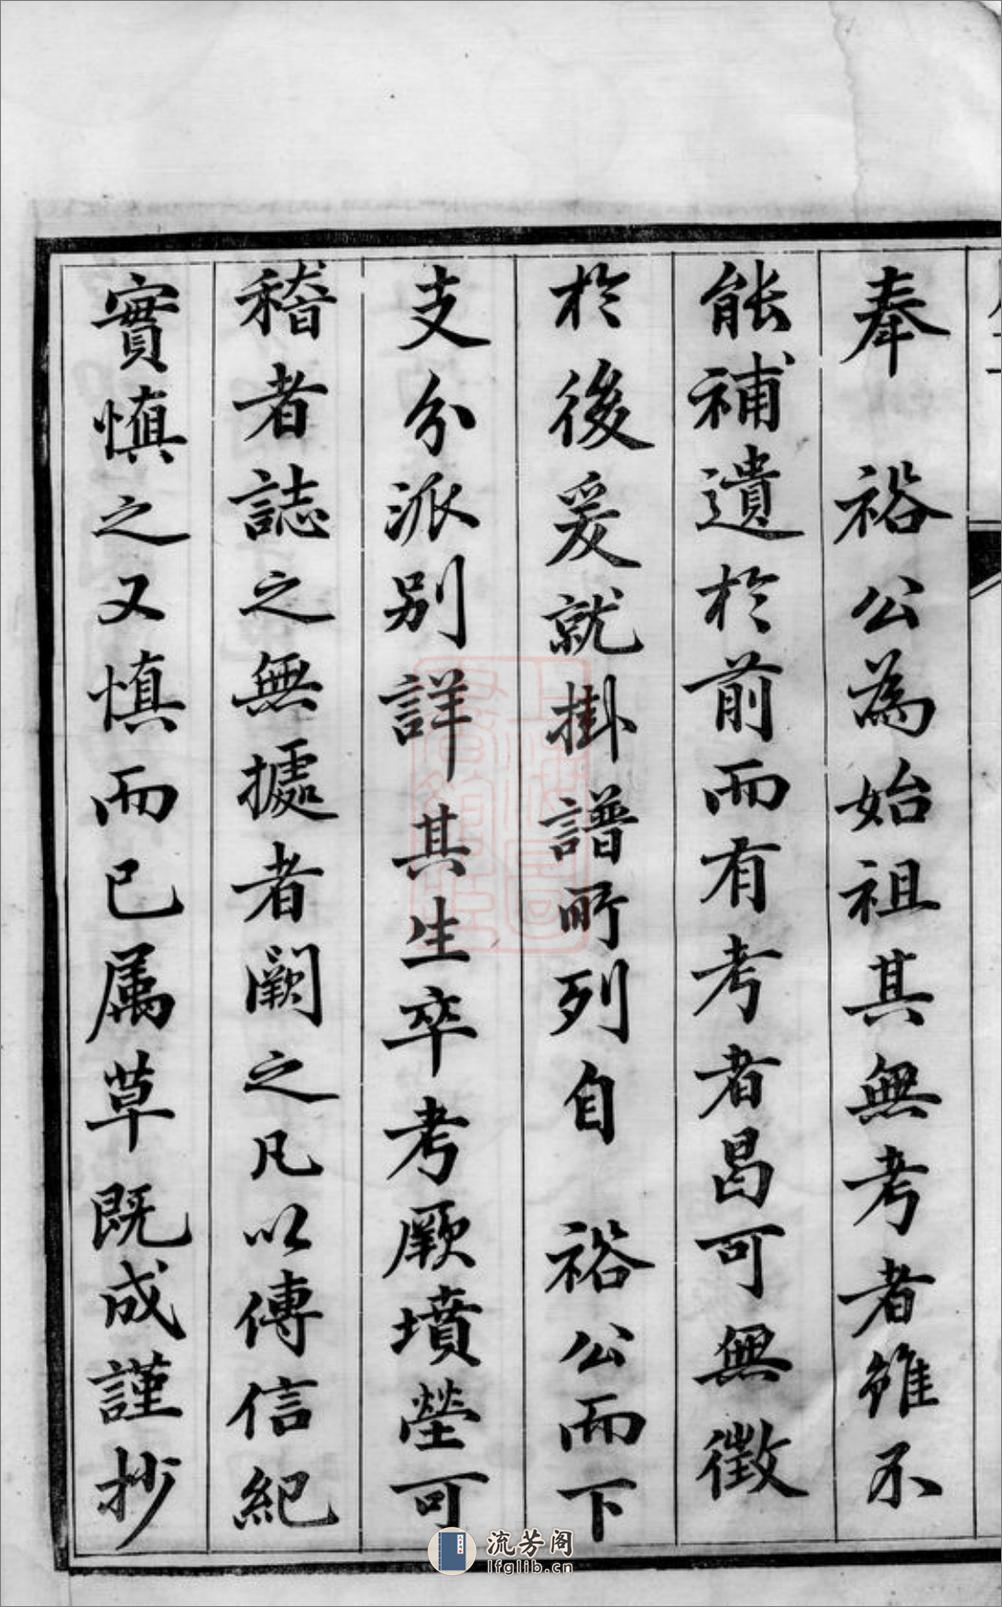 奉　裕公為始祖其無考者雖不
能補遺於前而有考者曷可無徵
於後爰就掛譜所列自　裕公而下
支分派別詳其生卒考厥墳塋可
稽者誌之無據者闕之凡以傳信紀
實慎之又慎而已属草既成謹抄
流芳阁
lfglib.cn